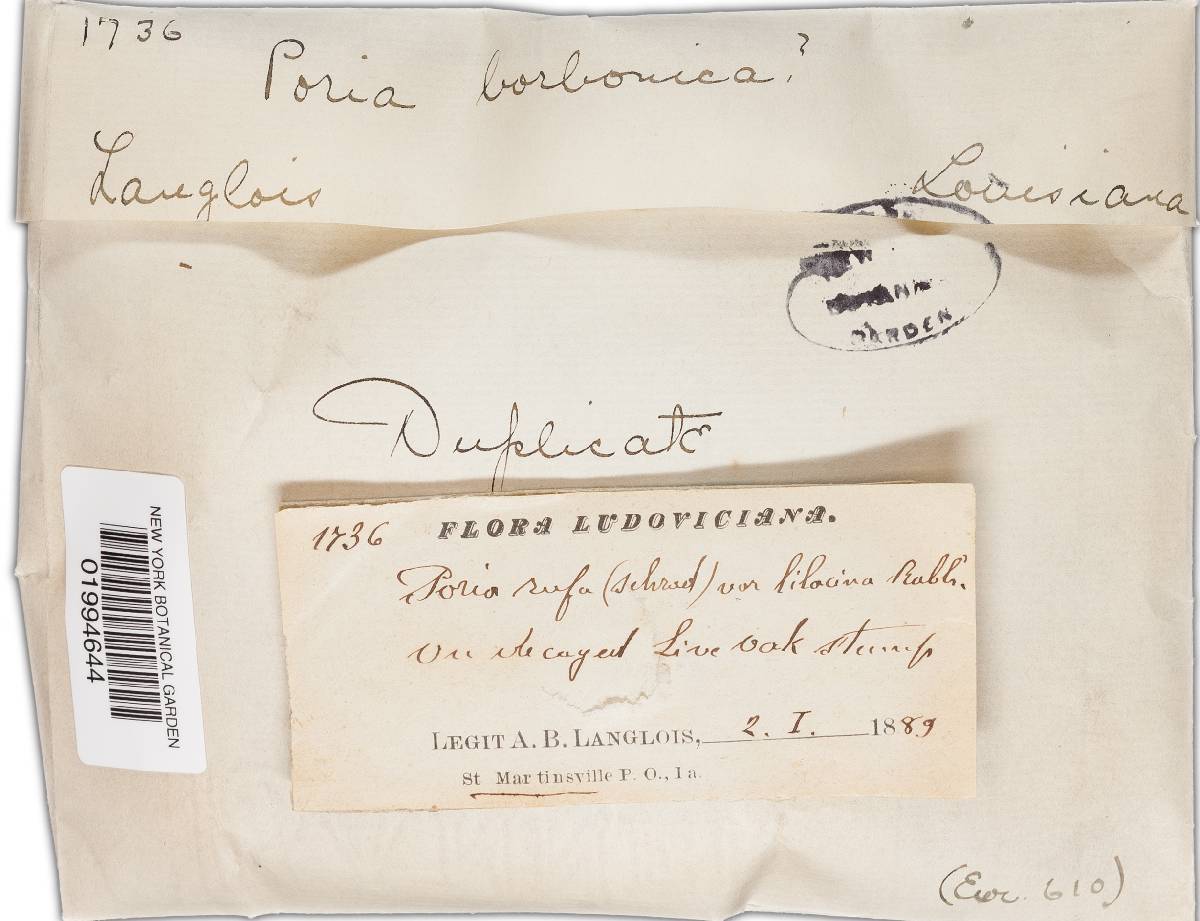 1736
Poria borbonica?
Langlois Louisiana
GARDEN
Duplicate
1736 FLORA LUDOVICIANA.
Poria rufa (Schrad) var lilacina Rabh.
On decayed Live oak stump
LEGIT A. B. LANGLOIS, 2. I. 1889
St Martinsville P. O., La.
NEW YORK BOTANICAL GARDEN
01994644
610)